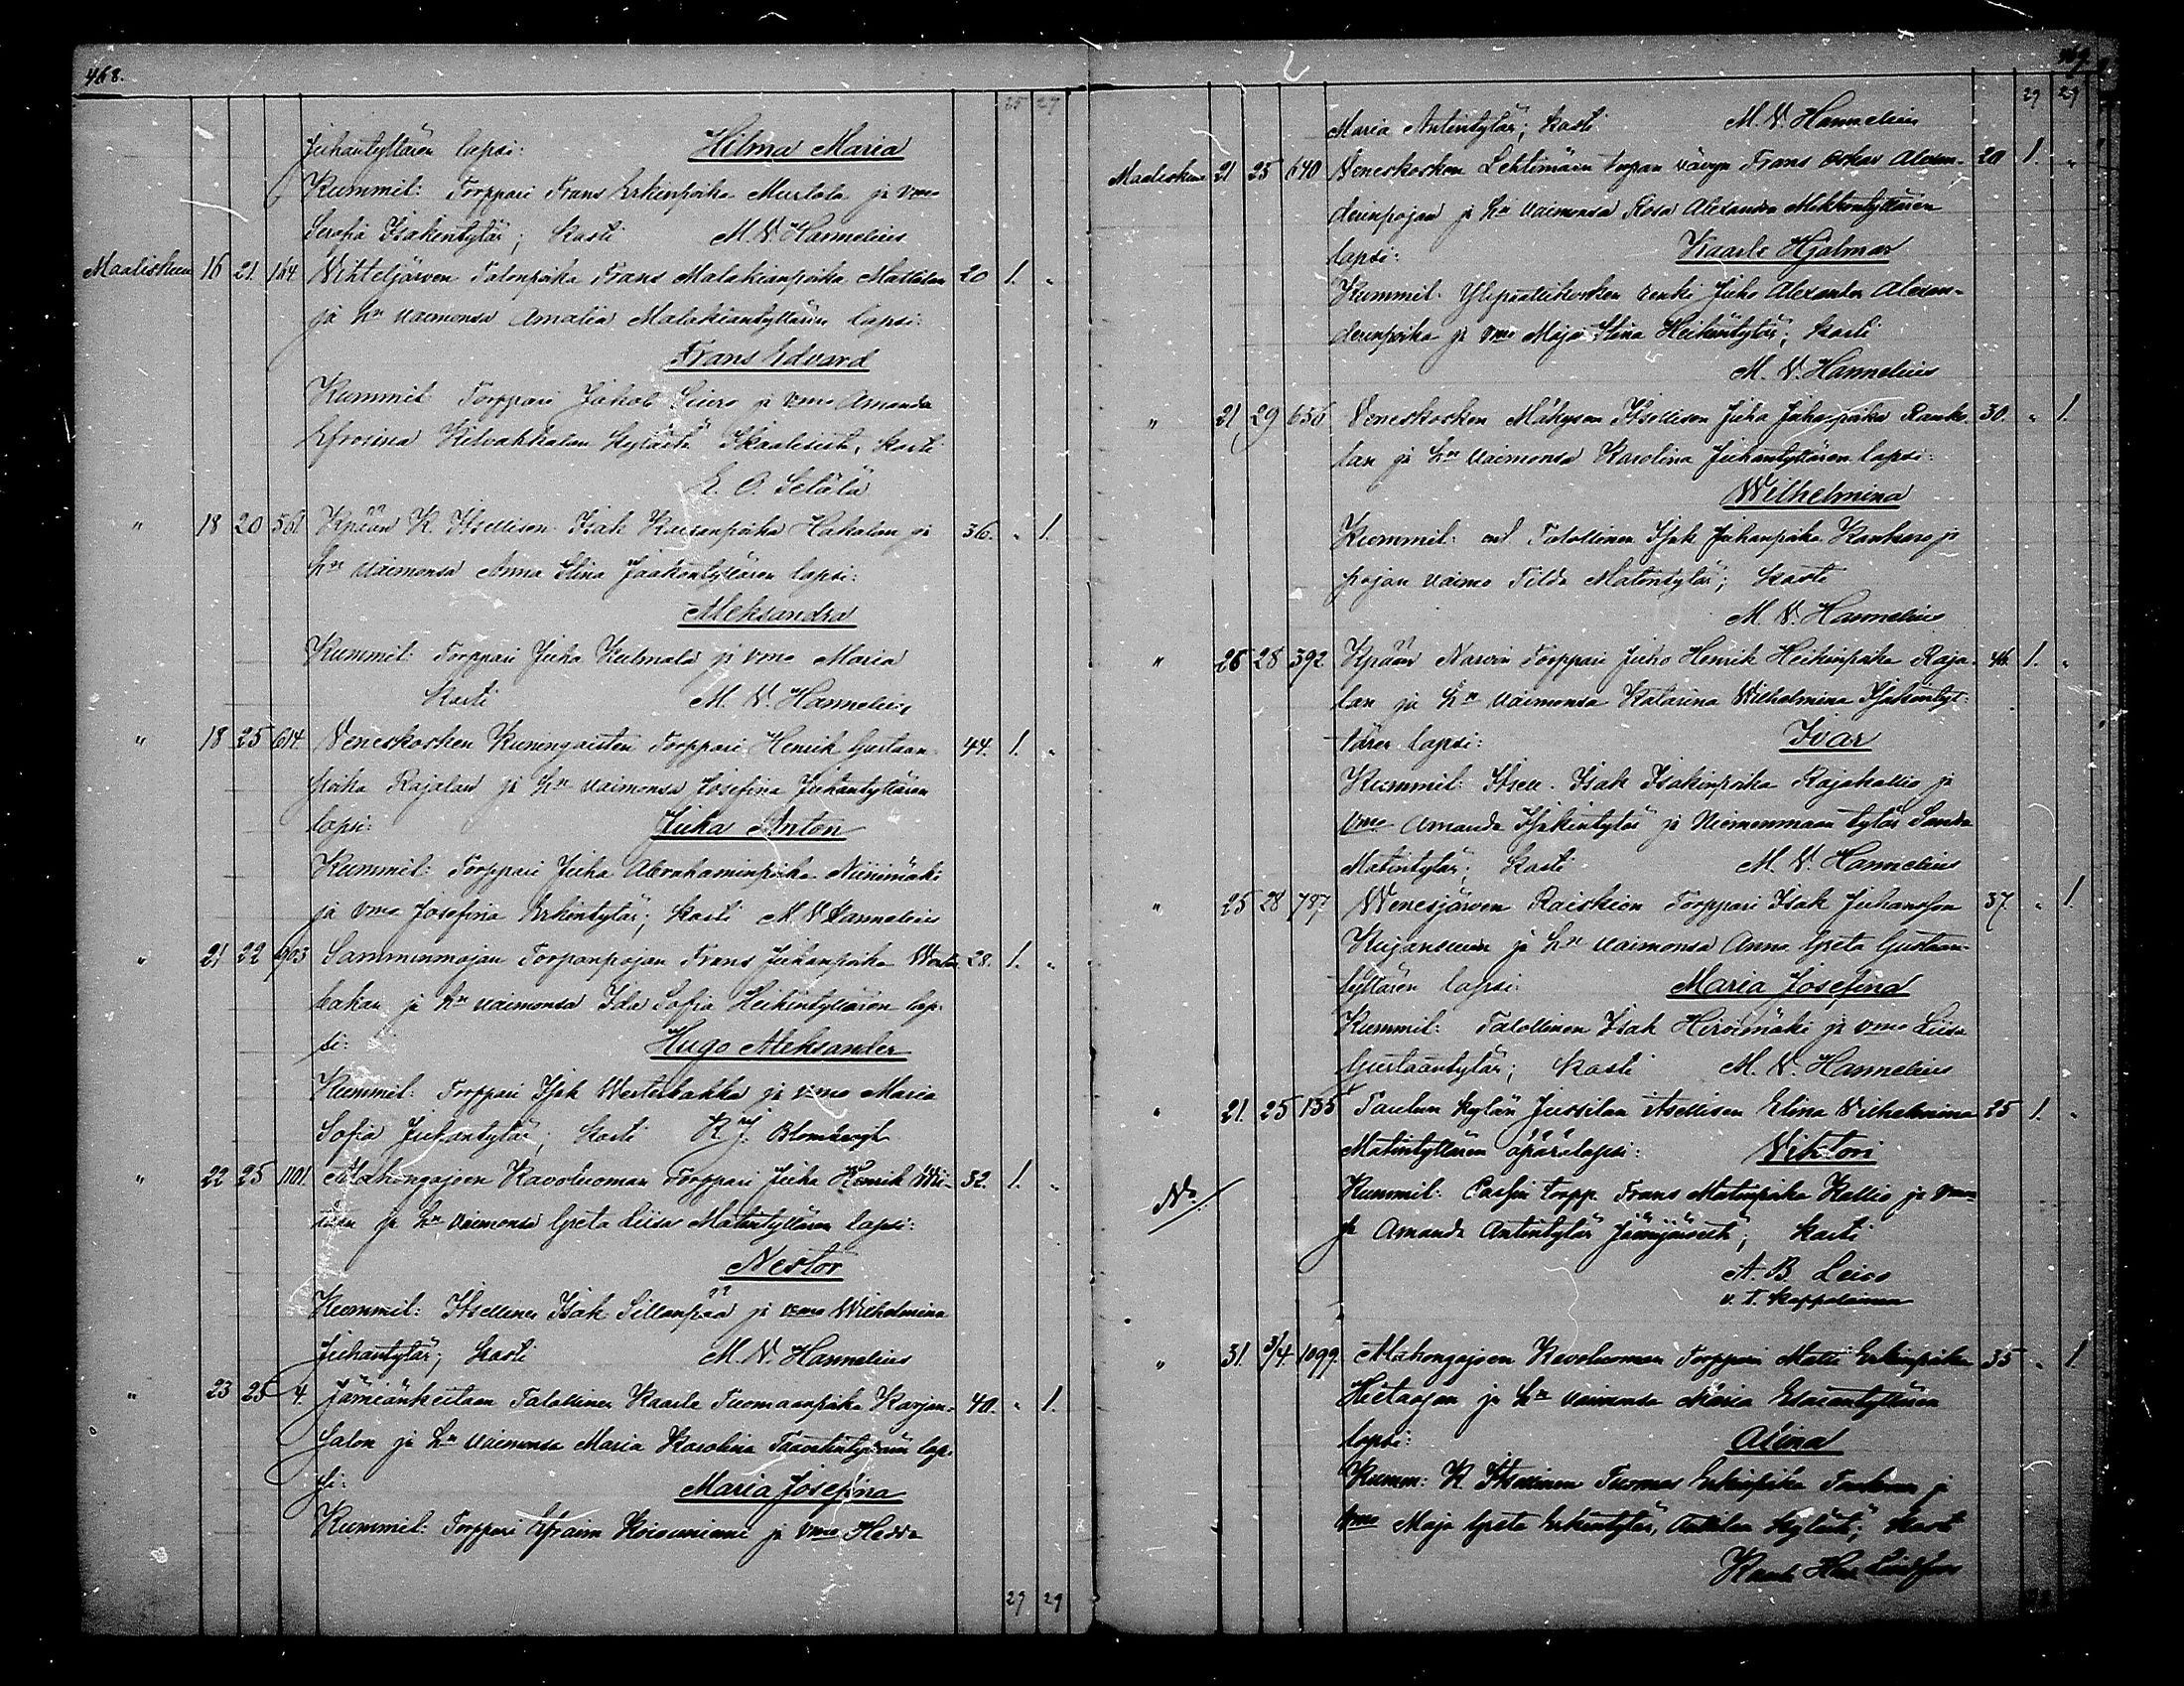 468.
25 27
Juhantyttären lapsi: Hilma Maria
Kummit: Torppari Frans Erkinpoika Murtola ja vmo
Serafia Isakintytär; kasti M. V. Hannelius
Maaliskuu 16 21. 164 Vihteljärven Talonpoika Frans Malakianpoika Mattilan 20 1. "
ja Hn vaimonsa Amalia Malakiantyttären lapsi:
Frans Edvard
Kummit: Torppari Jakob ja vmo Amanda
Efrosina kylästä kasti
E. O. Setälä
" 18 20 561 Kpään K. Itsellisen Isak Hakalan ja 36. " 1.
Hn vaimonsa Anna Stina Jaakontyttären lapsi:
Aleksandra
Kummit: Torppari Juha Kulmala ja vmo Maria
Kasti M. V. Hannelius
" 18 25 614. Veneskosken Kuningaisten Torppari Henrik Gustaan- 44. 1. "
poika Rajalan ja Hn vaimonsa Josefina Juhantyttären
lapsi: Juha Anton
Kummit: Torppari Juha Abrahaminpoika Niinimäki
ja vmo Josefina Erkintytär; kasti M. V. Hannelius
" 21 22 903 Samminmajan Torpanpojan Frans Juhanpoika Wester- 28. 1. "
bakan ja Hn vaimonsa Ida Sofia Heikintyttären lap-
si: Hugo Aleksander
Kummit: Torppari Isak Westerbakka ja vmo Maria
Sofia Juhantytär; kasti K. J. Blombergh
" 22 25 1101. Alahongajoen Kavoluoman Torppari Juha Henrik 32. 1. "
ja Hn vaimonsa Greta Liisa Matintyttären lapsi:
Nestor
Kummit: Itsellinen Isak Sillanpää ja vmo Wilhelmina
Juhantytär; kasti M. V. Hannelius
" 23 25 4. Jämiänkeitaan Talollinen Kaarle Tuomaanpoika Karjan- 40. " 1.
salon ja Hn vaimonsa Maria Karolina lap-
si: Maria Josefina
Kummit: Torppari Efraim Koivuniemi ja vmo Hedda
29 29
469
29 29
Maria Antintytär; kasti M. V. Hannelius
Maaliskuu 21 25 640 Veneskosken Lehtimäen torpan vävyn Frans Oskar Alexan- 20 1. "
derinpojan ja Hn vaimonsa Rosa Alexandra
lapsi: Kaarle Hjalmar
Kummit: renki Juho Alexander Alexan-
derinpoika ja vmo Maja Stina Heikintytär; kasti
M. V. Hannelius
" 21 29 656 Veneskosken Itsellisen Juha Juhanpoika 30. " 1.
lan ja Hn vaimonsa Karolina Juhantyttären lapsi:
Wilhelmina
Kummit: ent. Talollinen Isak Juhanpoika ja
pojan vaimo Tilda Matintytär; kasti
M. V. Hannelius
" 26 28 392. Kpään Narvin Torppari Juho Henrik Heikinpoika Raja- 46. 1. "
lan ja Hn vaimonsa Katarina Wilhelmina Isakintyt-
tären lapsi: Ivar
Kummit: Itsell. Isak Isakinpoika Rajakallio ja
vmo Amanda Isakintytär ja Niemenmaan tytär Sandra
Matintytär; kasti M. V. Hannelius
" 25 28 787 Wenesjärven Raiskion Torppari Isak Juhansson 37. " 1.
Kujansuun ja Hn vaimonsa Anna Greta Gustaan-
tyttären lapsi: Maria Josefina
Kummit: Talollinen Isak Hirvimäki ja vmo Liisa
Gustaantytär; kasti M. V. Hannelius
" 21. 25 135 kylän Jussilan itsellisen Elina Wilhelmina 25 1. "
Matintyttären äpärälapsi: Viktori
Kummit: torpp. Frans Matinpoika Kallio ja vmo
Amanda Antintytär Jämijärveltä; kasti
A. B. Leiso
v. t. kappalainen
" 31. 3/4. 1099. Alahongajoen Kavoluoman Torppari Matti Erkinpoika 35 " 1.
Hietaojan ja Hn vaimonsa Maria Esaiantyttären
lapsi: Alina
Kumm: K Itsellinen Tuomas Erkinpoika ja
vmo Maja Greta Erkintytär, kylästä; kasti